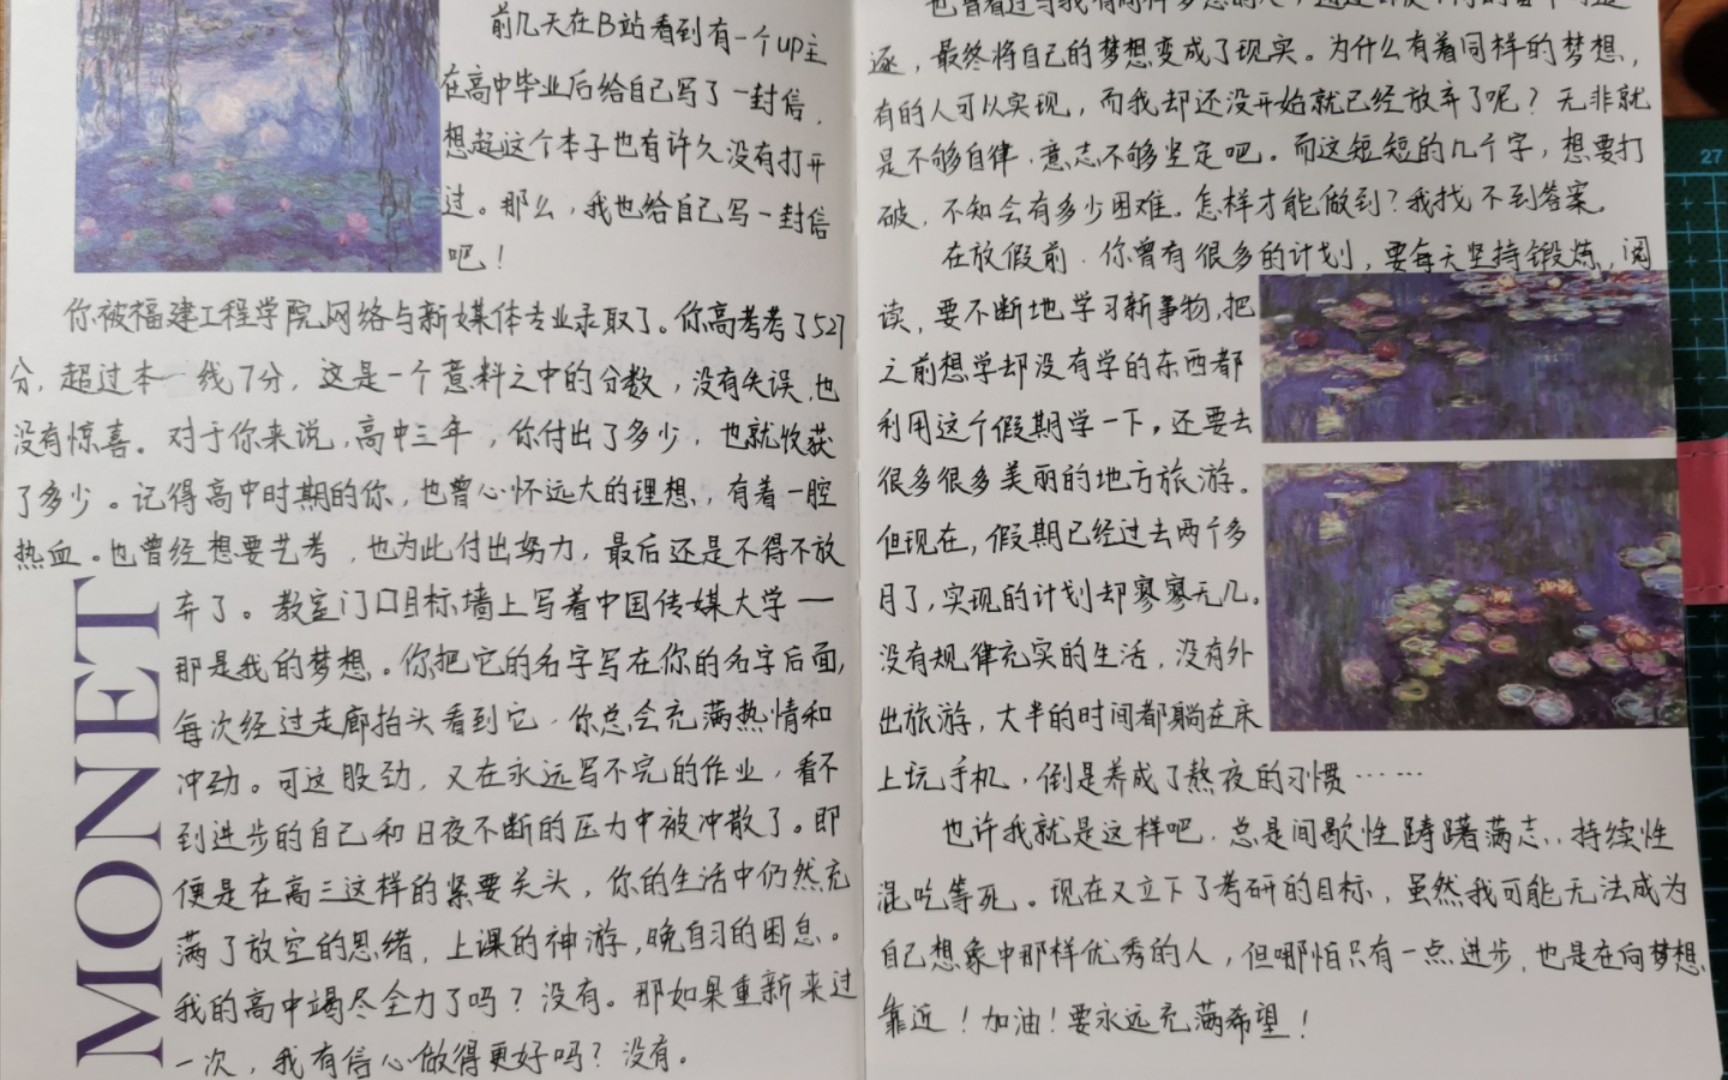 前几天在B站看到有一个up主
在高中毕业后给自己写了一封信，
想起这个本子也有许久没有打开
过。那么，我也给自己写一封信
吧！
你被福建工程学院网络与新媒体专业录取了。你高考考了527
分，超过本一线7分，这是一个意料之中的分数，没有失误，也
没有惊喜。对于你来说，高中三年，你付出了多少，也就收获
了多少。记得高中时期的你，也曾心怀远大的理想，有着一腔
热血。也曾经想要艺考，也为此付出努力，最后还是不得不放
弃了。教室门口目标墙上写着中国传媒大学——
那是我的梦想。你把它的名字写在你的名字后面，
每次经过走廊抬头看到它，你总会充满热情和
冲劲。可这股劲，又在永远写不完的作业，看不
到进步的自己和日夜不断的压力中被冲散了。即
便是在高三这样的紧要关头，你的生活中仍然充
满了放空的思绪，上课的神游，晚自习的困息。
我的高中竭尽全力了吗？没有。那如果重新来过
一次，我有信心做得更好吗？没有。
MONET
逐，最终将自己的梦想变成了现实。为什么有着同样的梦想，
有的人可以实现，而我却还没开始就已经放弃了呢？无非就
是不够自律，意志不够坚定吧。而这短短的几个字，想要打
破，不知会有多少困难。怎样才能做到？我找不到答案。
在放假前，你曾有很多的计划，要每天坚持锻炼，阅
读，要不断地学习新事物，把
之前想学却没有学的东西都
利用这个假期学一下。还要去
很多很多美丽的地方旅游。
但现在，假期已经过去两个多
月了，实现的计划却寥寥无几。
没有规律充实的生活，没有外
出旅游，大半的时间都躺在床
上玩手机，倒是养成了熬夜的习惯……
也许我就是这样吧，总是间歇性踌躇满志，持续性
混吃等死。现在又立下了考研的目标，虽然我可能无法成为
自己想象中那样优秀的人，但哪怕只有一点进步，也是在向梦想
靠近！加油！要永远充满希望！
27